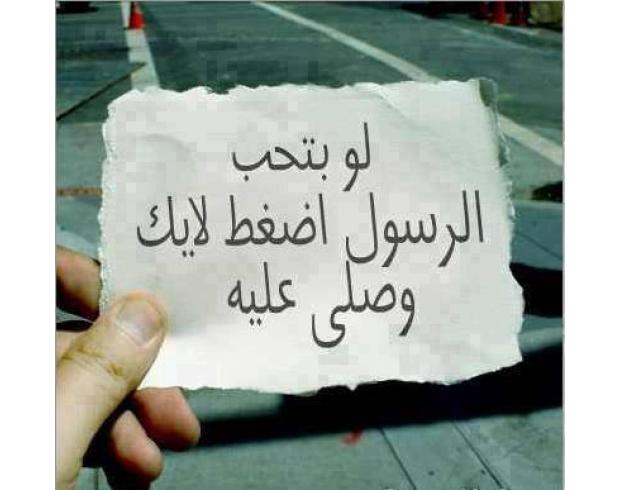 لو بتحب
الرسول اضغط لايك
وصلى عليه